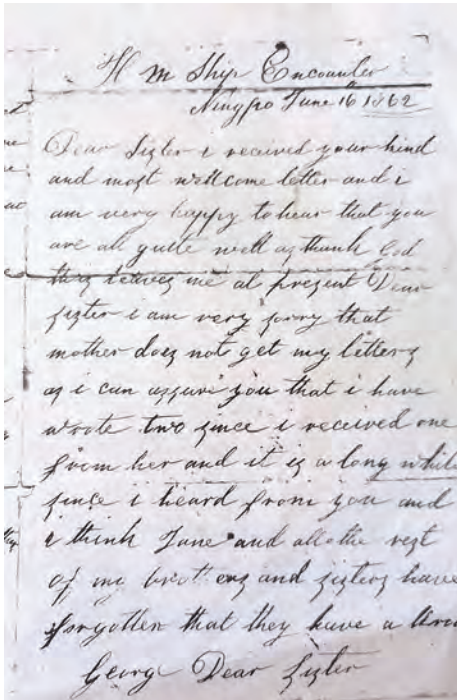 H M Ship Encounter
Ningpo June 16 1862
Dear Sister i received your kind
and most wellcome letter and i
am very happy to hear that you
are all quite well as thank God
this leaves me at present Dear
sister i am very sorry that
mother does not get my letters
as i can assure you that i have
wrote two since i received one
from her and it is a long while
since i heard from you and
i think Jane and all the rest
of my brothers and sisters have
forgotten that they have a
Georg Dear Sister